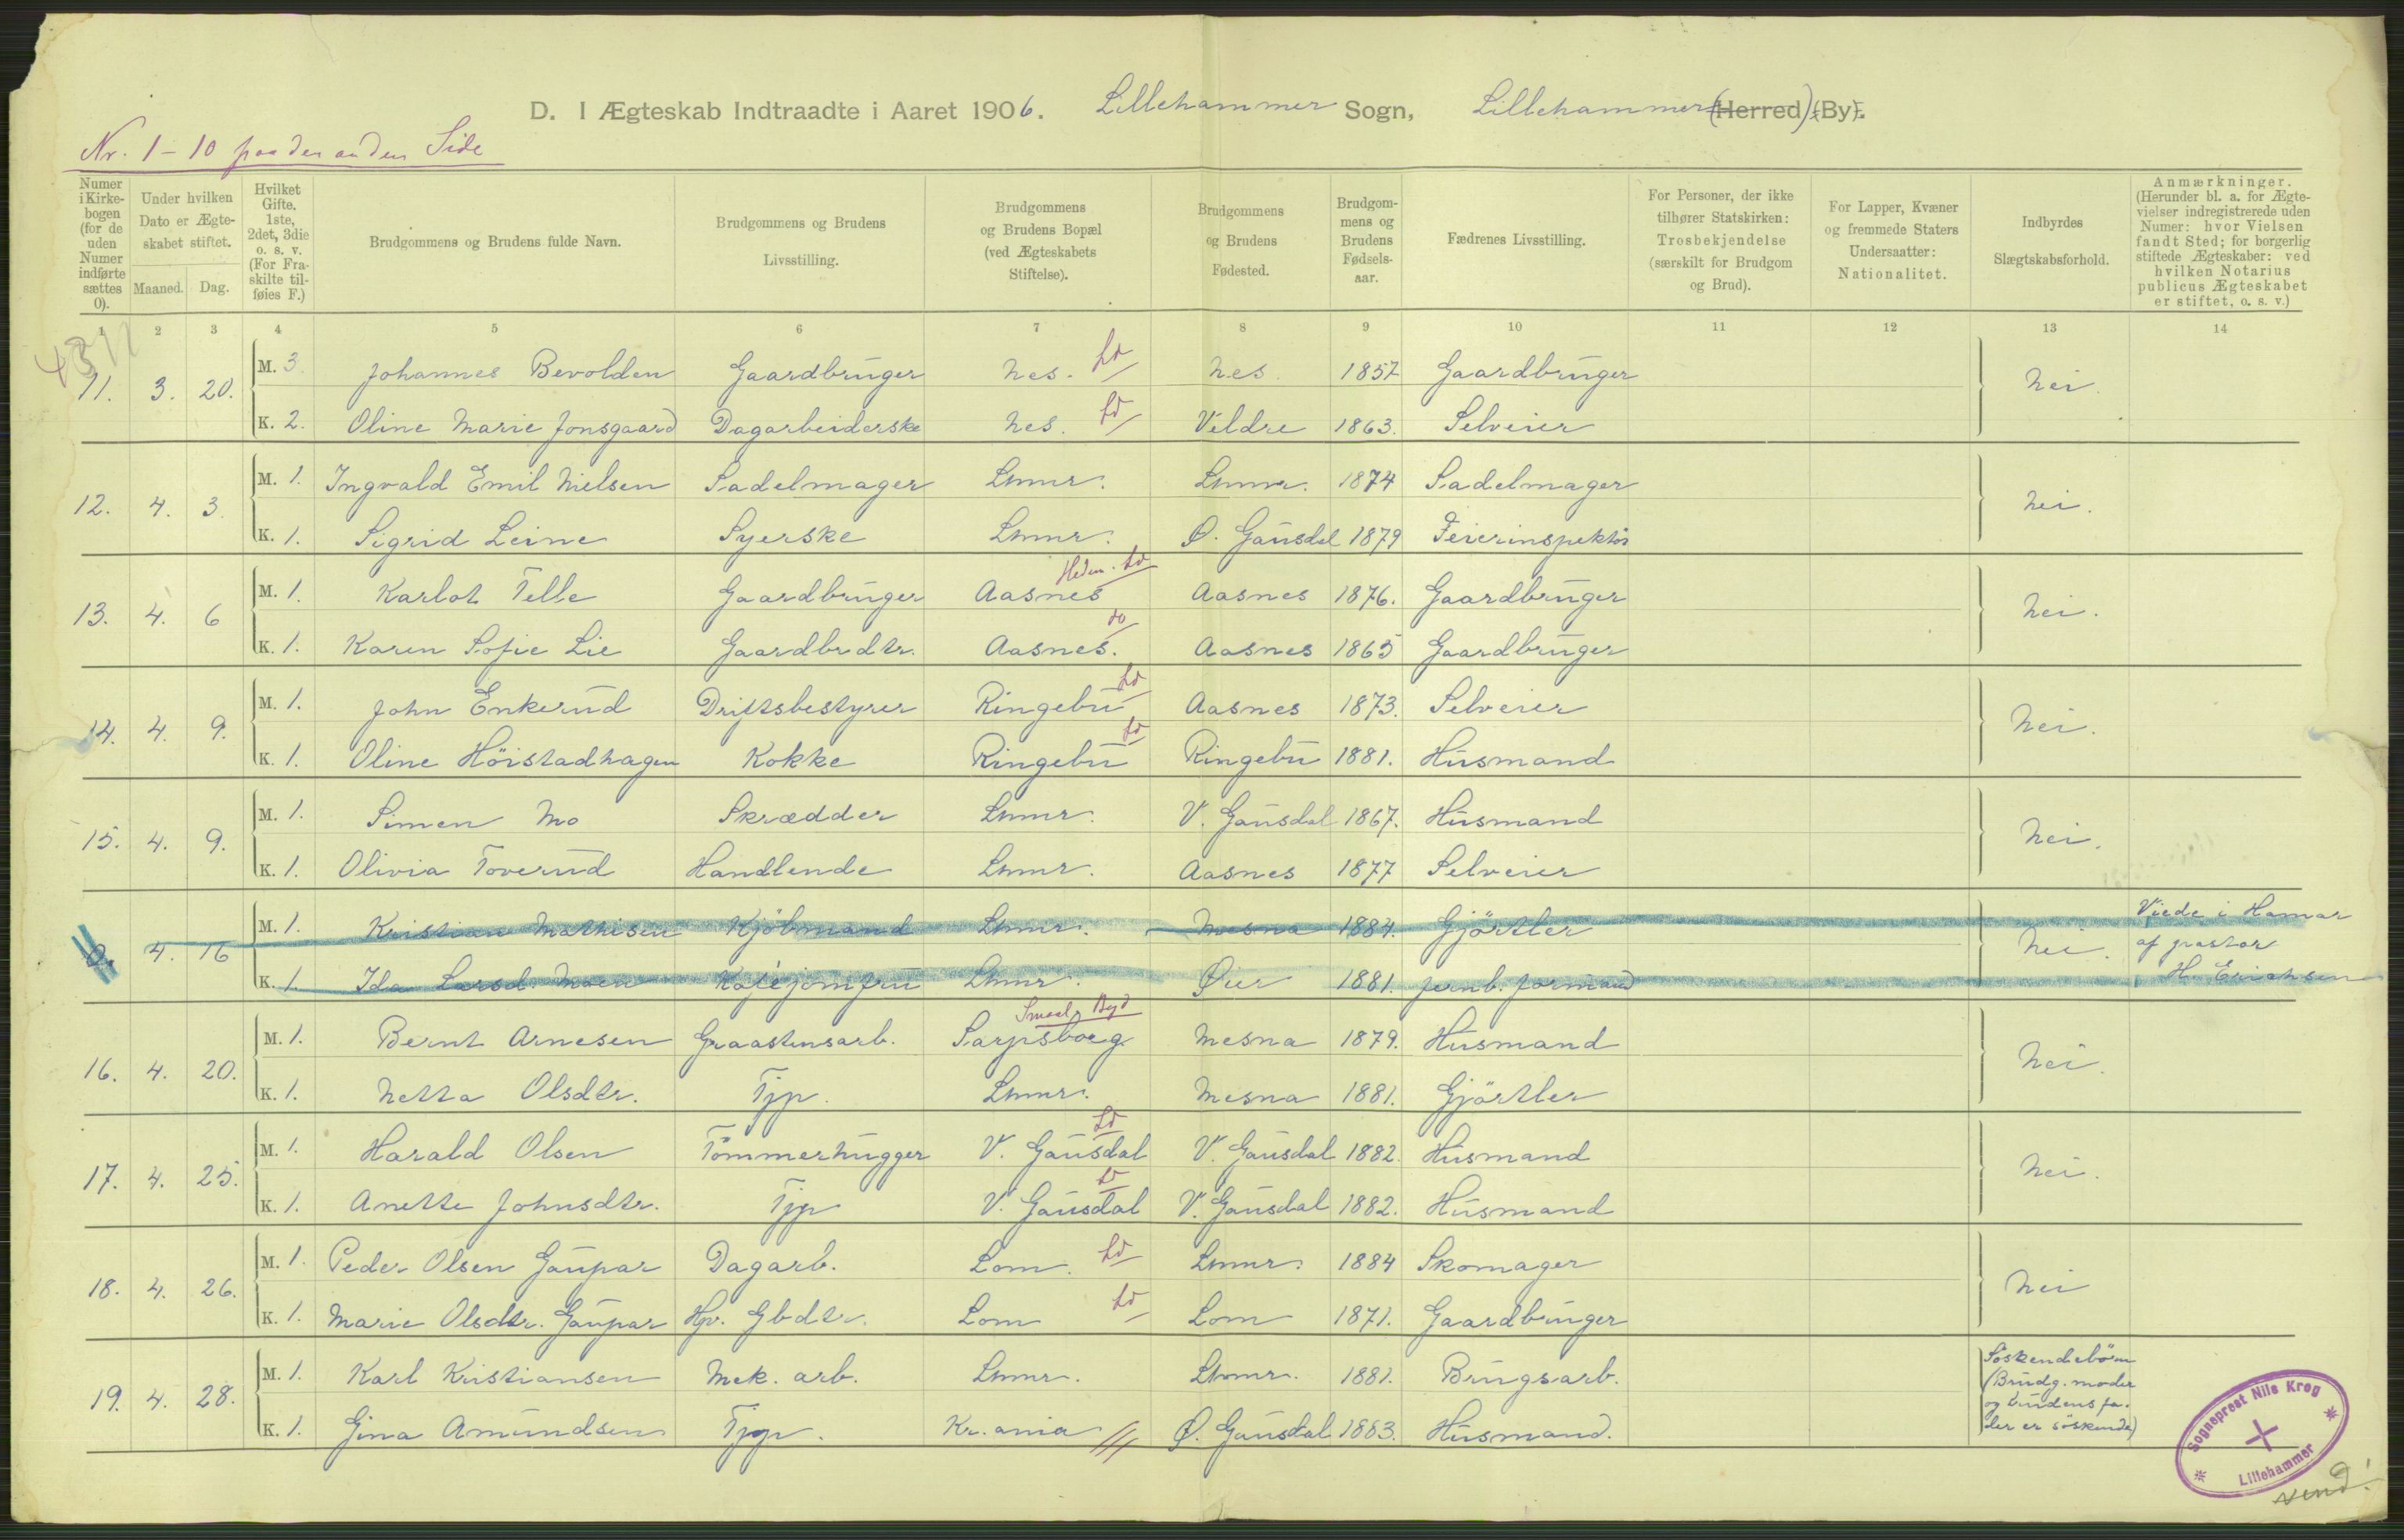 D. I Ægteskab Indtraadte i Aaret 1906. Lillehammer Sogn, Lillehammer (Herred) (By).
Nr. 1-10 paa den anden Side
Numer i Kirkebogen (for de uden Numer indførte sættes 0).
Under hvilken Dato er Ægteskabet stiftet.
Maaned. Dag.
Hvilket Gifte. 1ste, 2det, 3die o. s. v. (For Fraskilte tilføies F.)
Brudgommens og Brudens fulde Navn.
Brudgommens og Brudens Livsstilling.
Brudgommens og Brudens Bopæl (ved Ægteskabets Stiftelse).
Brudgommens og Brudens Fødested.
Brudgommens og Brudens Fødselsaar.
Fædrenes Livsstilling.
For Personer, der ikke tilhører Statskirken: Trosbekjendelse (særskilt for Brudgom og Brud).
For Lapper, Kvæner og fremmede Staters Undersaatter: Nationalitet.
Indbyrdes Slægtskabsforhold.
Anmærkninger. (Herunder bl. a. for Ægtevielser indregistrerede uden Numer: hvor Vielsen fandt Sted; for borgerlig stiftede Ægteskaber: ved hvilken Notarius publicus Ægteskabet er stiftet, o. s. v.)
1 2 3 4 5 6 7 8 9 10 11 12 13 14
11. 3. 20. M. 3 Johannes Bevolden Gaardbruger Nes. Ld Nes. 1857 Gaardbruger Nei.
K. 2. Oline Marie Jonsgaard Dagarbeiderske Nes. Ld Veldre 1863. Selveier
12. 4. 3. M. 1. Ingvald Emil Nielsen Sadelmager Lhmr. Lhmr. 1874 Sadelmager Nei.
K. 1. Sigrid Leine Syerske Lhmr. Ø. Gausdal 1879 Feierinspektör
13. 4. 6 M. 1. Karlot Telle Gaardbruger Aasnes Hedm. Ld Aasnes 1876. Gaardbruger Nei.
K. 1. Karen Sofie Lie Gaardbrdtr. Aasnes. do Aasnes 1865 Gaardbruger
14. 4. 9. M. 1. John Enkerud Driftsbestyrer Ringebu Ld Aasnes 1873. Selveier Nei.
K. 1. Oline Höistadhagen Kokke Ringebu Ld Ringebu 1881. Husmand
15. 4. 9. M. 1. Simen Mo Skrædder Lhmr. V. Gausdal 1867. Husmand Nei.
K. 1. Olivia Toverud Handlende Lhmr. Aasnes 1877 Selveier
0. 4. 16 M. 1. Kristian Mathisen Kjöbmand Lhmr. Mesna 1884. Gjörtler Nei. Viede i Hamar
af pastor
K. 1. Ida Larsd. Moen Kafejomfru Lhmr. Øier 1881. Jernb. formand H. Erichsen
16. 4. 20. M. 1. Bernt Arnesen Graastensarb. Sarpsborg Smaal. Byd Mesna 1879. Husmand Nei.
K. 1. Netta Olsdtr. Tjp. Lhmr. Mesna 1881. Gjörtler
17. 4. 25. M. 1. Harald Olsen Tömmerhugger V. Gausdal Ld V. Gausdal 1882. Husmand Nei.
K. 1. Anette Johnsdtr. Tjp V. Gausdal Ld V. Gausdal 1882. Husmand
18. 4. 26. M. 1. Peder Olsen Gaupar Dagarb. Lom. Ld Lhmr. 1884 Skomager Nei
K. 1. Marie Olsdtr. Gaupar Hjv. Gbdtr. Lom Ld Lom 1871. Gaardbruger
19. 4. 28. M. 1. Karl Kristiansen Mek. arb. Lhmr. Lhmr. 1881. Brugsarb. Söskendebörn
(Brudg. moder
og brudens fa-
der er söskende)
K. 1. Gina Amundsen Tjp. Kr.ania Ø. Gausdal 1883. Husmand.
Sogneprest Nils Krog
Lillehammer
vend!